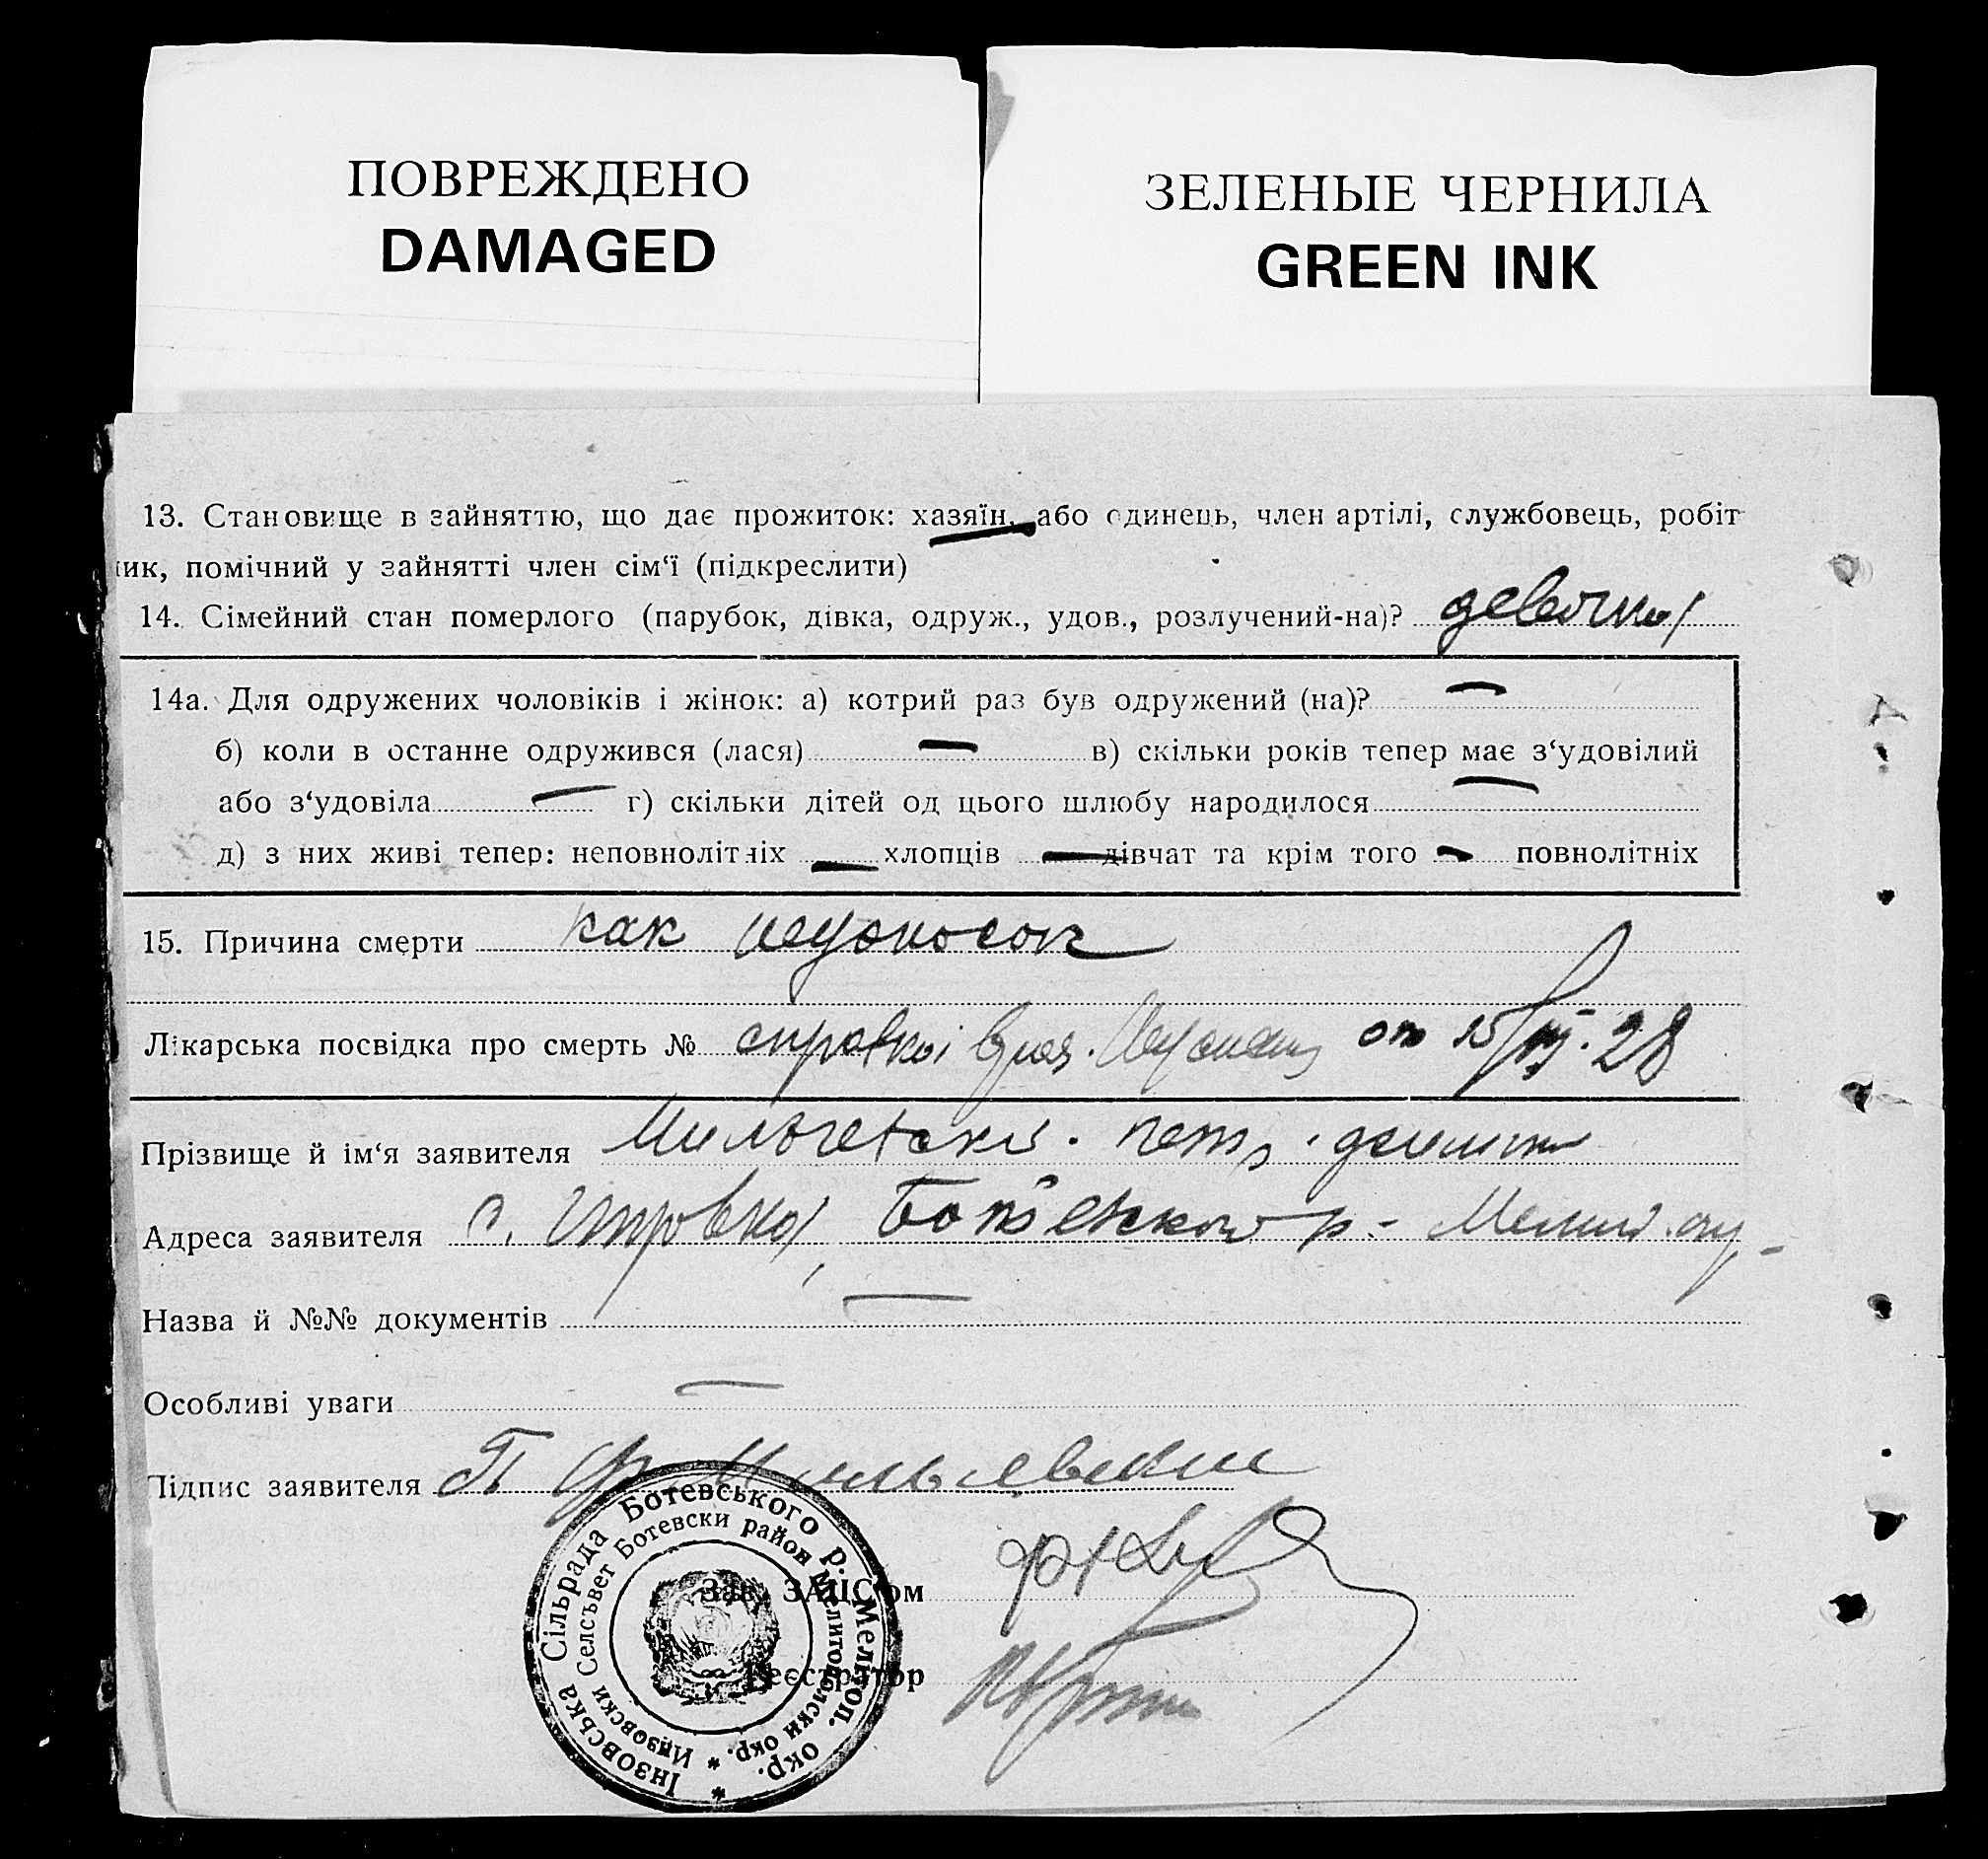 ПОВРЕЖДЕНО
DAMAGED
ЗЕЛЕНЫЕ ЧЕРНИЛА
GREEN INK
13. Становище в зайняттю, що дає прожиток: хазяїн, або одинець, член артілі, службовець, робіт-
ник, помічний у зайнятті член сім‘ї (підкреслити)
14. Сімейний стан померлого (парубок, дівка, одруж., удов., розлучений-на)? девочка
14а. Для одружених чоловіків і жінок: а) котрий раз був одружений (на)? —
б) коли в останне одружився (лася) — в) скільки років тепер має з‘удовілий
або з‘удовіла — г) скільки дітей од цього шлюбу народилося —
д) з них живі тепер: неповнолітніх — хлопців — дівчат та крім того — повнолітніх
15. Причина смерти как недоносок
Лікарська посвідка про смерть № справка от 15/ 28
Прізвище й ім‘я заявителя Петр
Адреса заявителя с. р-
Назва й №№ документів —
Особливі уваги —
Підпис заявителя П
Зав. ЗАЦС‘ом
Реєстратор
Інзовська Сільрада Ботевського р. Мелітоп. окр. *
Инзовски Селсъвет Ботевски район Мелитополски окр. *